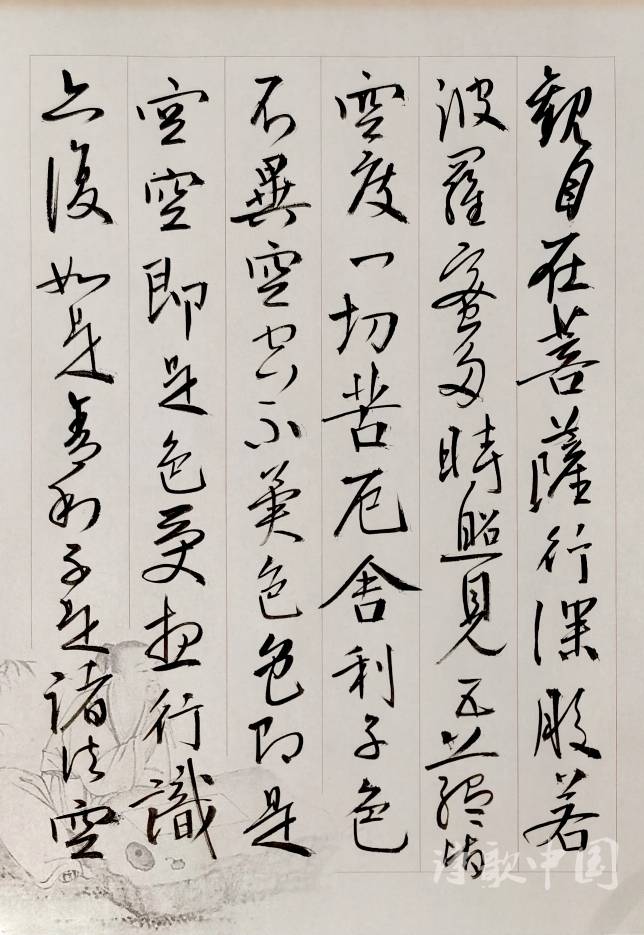 觀自在菩薩行深般若
波羅蜜多時照見五蘊皆
空度一切苦厄舍利子色
不異空空不異色色即是
空空即是色受想行識
亦復如是舍利子是諸法空
诗歌中国